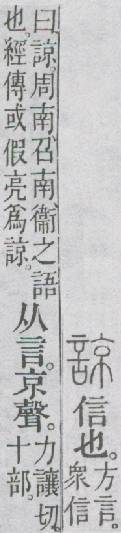 諒 信也。方言。衆信
曰諒。周南召南衞之語
也。經傳或假亮爲諒。
从言。京聲。力讓切。十部。